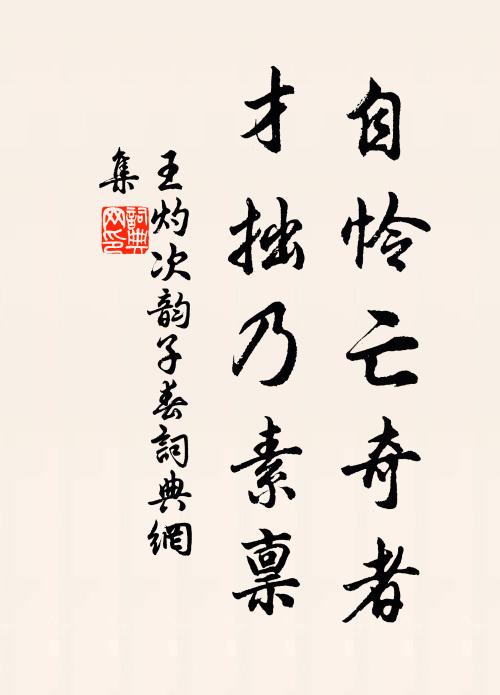 自怜亡奇者
才拙乃素禀
王灼次韵子春詞典網
集
詞典网印